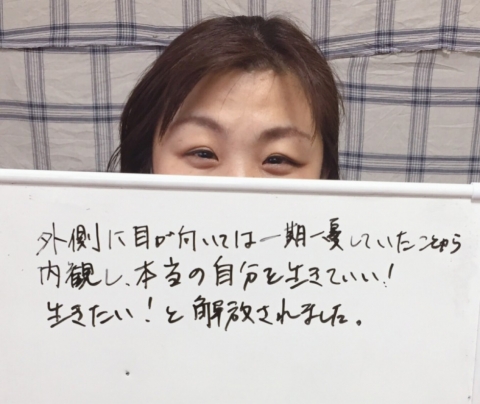 外側に目が向いては一期一憂していたことから
内観し、本当の自分を生きていい!
生きたい!と解放されました。